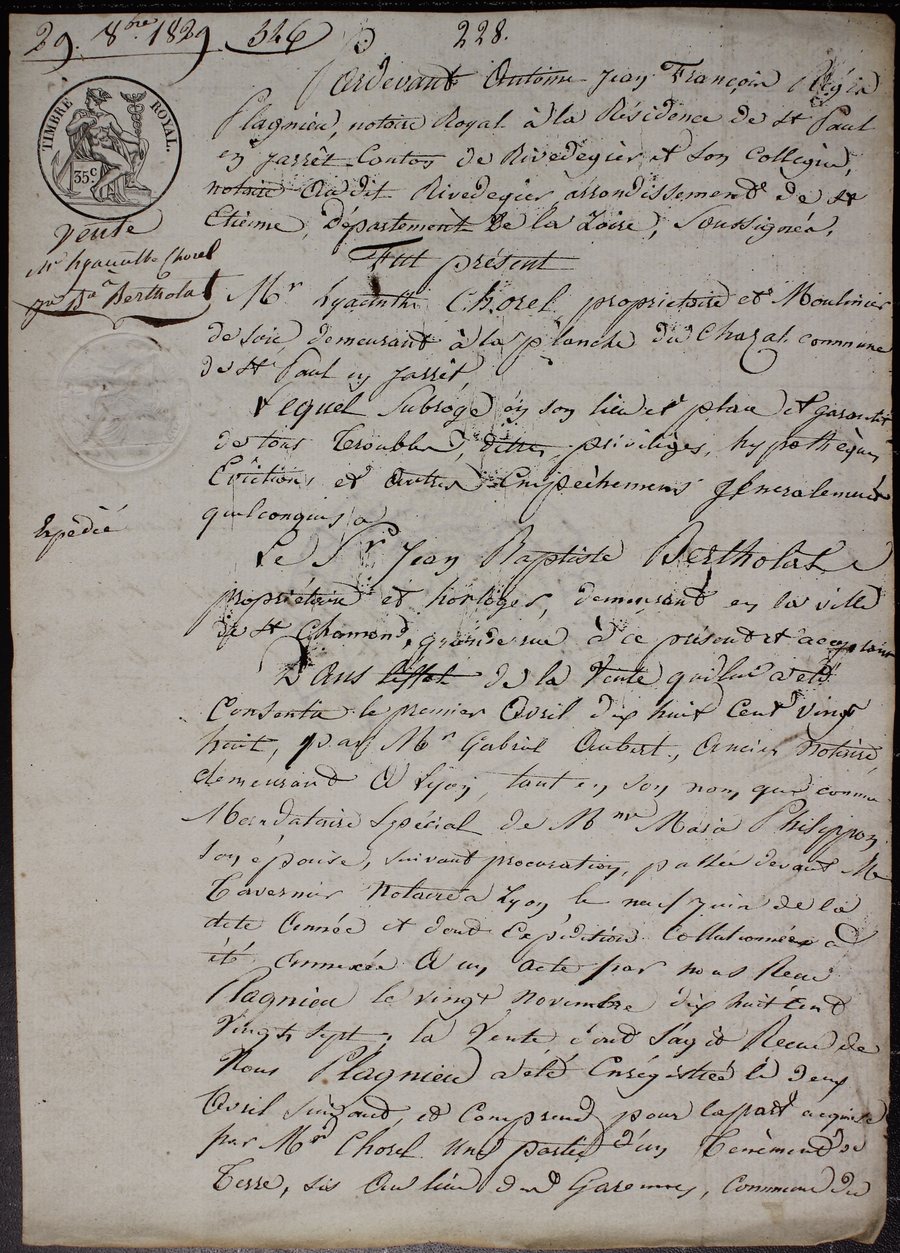 29. 8bre 1829 546 228.
Pardevant Antoine Jean François Régis
Plagnieu, notaire Royal à la Résidence de St Paul
en Jarrêt Canton de Rivedegier, et son Collègue,
notaire Audit Rivedegier, arrondissement de St
Etienne, Département de la Loire, Soussignés,
TIMBRE ROYAL.
35c
Vente
Mr hyacinthe Chorel
à
Bertholat
Expédié
Fut présent
Mr hyacinthe Chorel, propriétaire et Moulinier
de soie, demeurant à la planche du Chazal commune
de St Paul en Jarrêt
Lequel Subroge en son lieu et place et garantit
de tous troubles, dettes, privilèges, hypothèques
Evictions et Autres Empêchemens généralement
quelconques a
Le Sr Jean Baptiste Bertholat
propriétaire et horloger, demeurant en la ville
de St Chamond, grande rue à ce présent et acceptant
Dans l'effet de la Vente qui lui a été
Consentie le premier Avril dix huit Cent vingt
huit, par Mr Gabriel Aubert, Ancien Notaire,
demeurant A Lyon, tant en son nom que comme
Mandataire Spécial de Mme Maria Philippon
son épouse, suivant procuration, passée devant Me
Tavernier Notaire a Lyon le neuf juin de la
dite Année et dont Expédition Collationnée a
été Annexée A un acte par nous Recu
Plagnieu le vingt novembre dix huit Cent
Vingt sept, la Vente dont s'agit Recue de
Nous Plagnieu a été Enrégistrée le deux
Avril suivant, et Comprend pour la part acquise
par Mr Chorel Une partie d'un Tenèment de
Terre, sis Au lieu des Garennes, Commune de